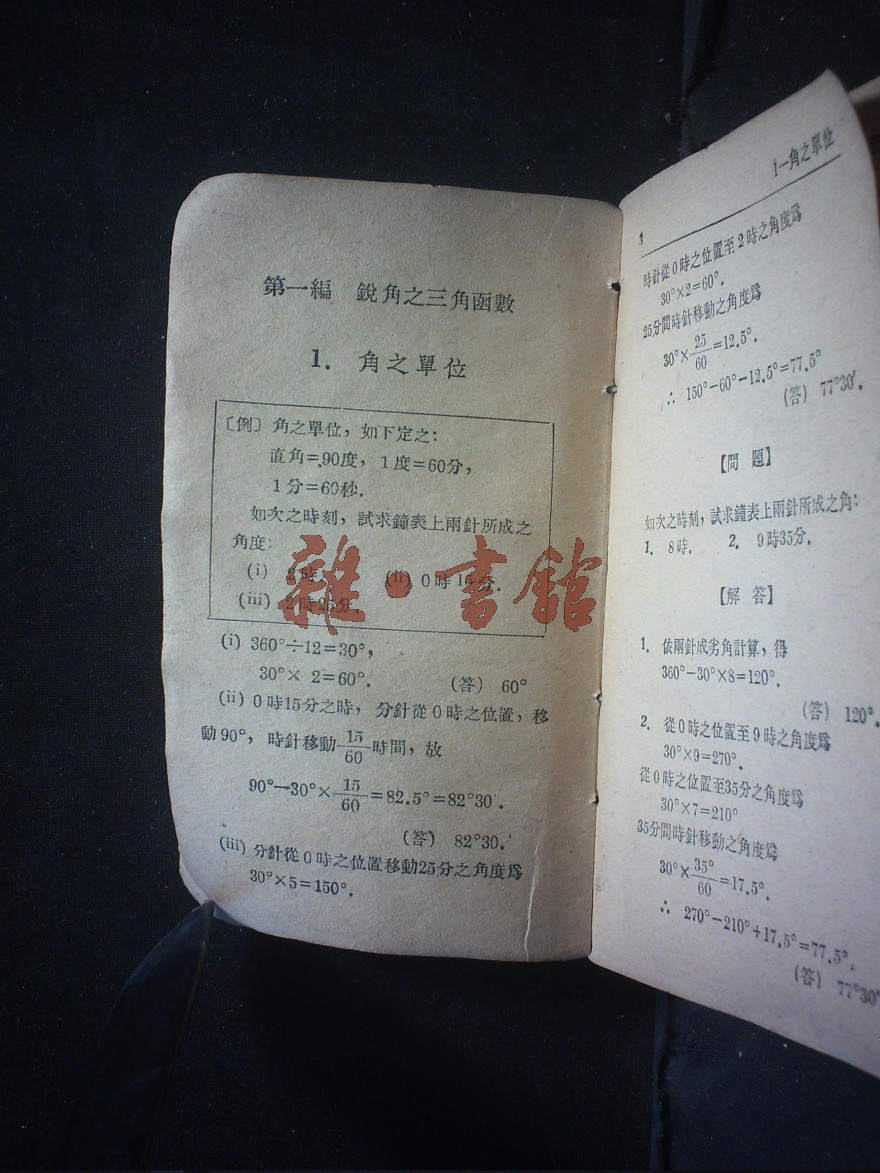 第一編 銳角之三角函數
1. 角之單位
〔例〕角之單位，如下定之：
直角=90度，1度=60分，
1分=60秒．
如次之時刻，試求鐘表上兩針所成之
角度：
(i) 2時． (ii) 0時15分．
(iii) 2時25分．
(i) 360°÷12=30°，
30°× 2=60°． (答) 60°
(ii) 0時15分之時，分針從0時之位置，移
動90°，時針移動15/60時間，故
90°—30°×15/60=82.5°=82°30′．
(答) 82°30.′
(iii) 分針從0時之位置移動25分之角度爲
30°×5=150°．
雜·書館
1—角之單位
3
時針從0時之位置至2時之角度爲
30°×2=60°．
25分間時針移動之角度爲
30°×25/60=12.5°．
∴ 150°—60°—12.5°=77.5°
(答) 77°30′．
【問題】
如次之時刻，試求鐘表上兩針所成之角：
1. 8時． 2. 9時35分．
【解答】
1. 依兩針成劣角計算，得
360°—30°×8=120°．
(答) 120°．
2. 從0時之位置至9時之角度爲
30°×9=270°．
從0時之位置至35分之角度爲
30°×7=210°
35分間時針移動之角度爲
30°×35°/60=17.5°．
∴ 270°—210°+17.5°=77.5°．
(答) 77°30′